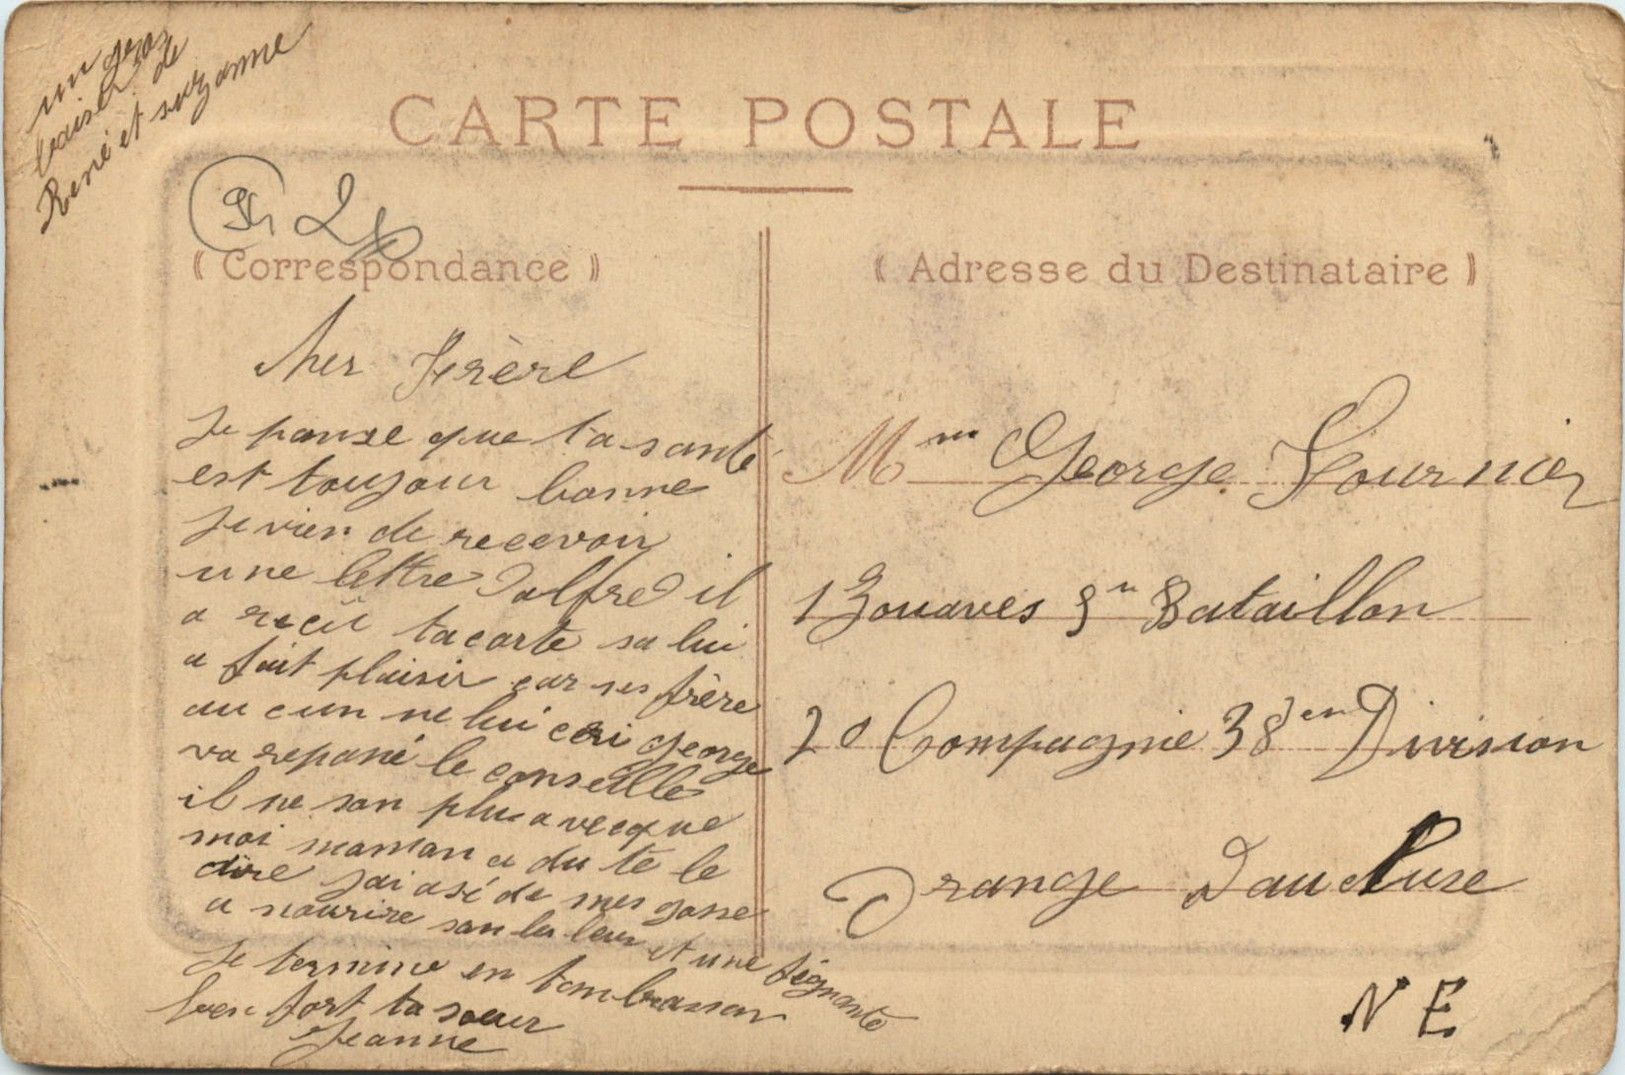 un gros
baiser de
René et suzanne
CARTE POSTALE
( Correspondance )
Cher Frère
Je panse que ta santé
est toujour bonne
Je vien de recevoir
une lettre Dalfred il
a reçu ta carte sa lui
a fait plaisir car ses frère
au cun ne lui ecri george
va repasé le conseille
il ne son plus avecque
moi maman a du te le
dire jai asé de mes gosse
a nourire son
et une feignante
Je termine en tembrassan
bien fort ta soeur
Jeanne
( Adresse du Destinataire )
M George Fournier
1 Zouaves 9 Bataillon
20 Compagnie 38 en Division
Orange Vaucluse
N E